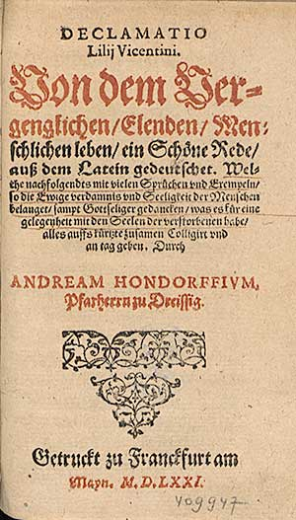 DECLAMATIO
Lilij Vicentini.
Von dem Ver-
genglichen/Elenden/Men-
schlichen leben/ein Schöne Rede/
auß dem Latein gedeutschet. Wel-
che nachfolgendts mit vielen Sprüchen vnd Exempeln/
so die Ewige verdamnis vnd Seeligkeit der Menschen
belanget/sampt Gottseliger gedancken/was es für eine
gelegenheit mit den Seelen der verstorbenen habe/
alles auffs kürtzte zusamen Colligirt vnd
an tag geben. Durch
ANDREAM HONDORFFIVM,
Pfarherrn zu Dreissig.
Getruckt zu Franckfurt am
Mayn. M. D. LXXI.
409947